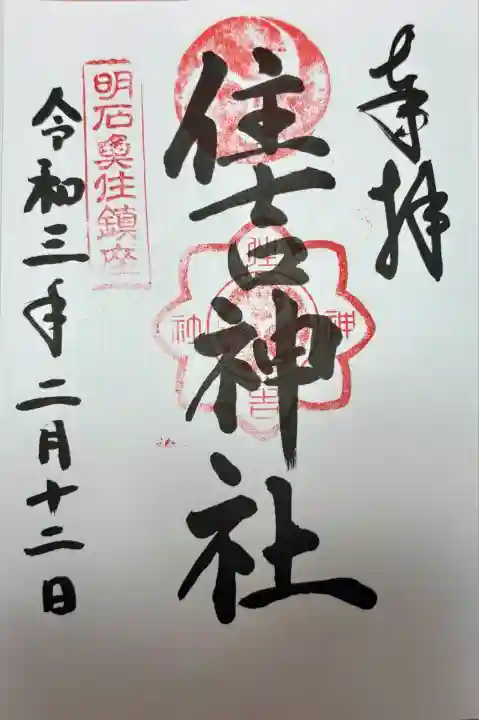 奉拝
住吉神社
住
吉
神
社
明石奥住鎮座
令和三年二月十二日